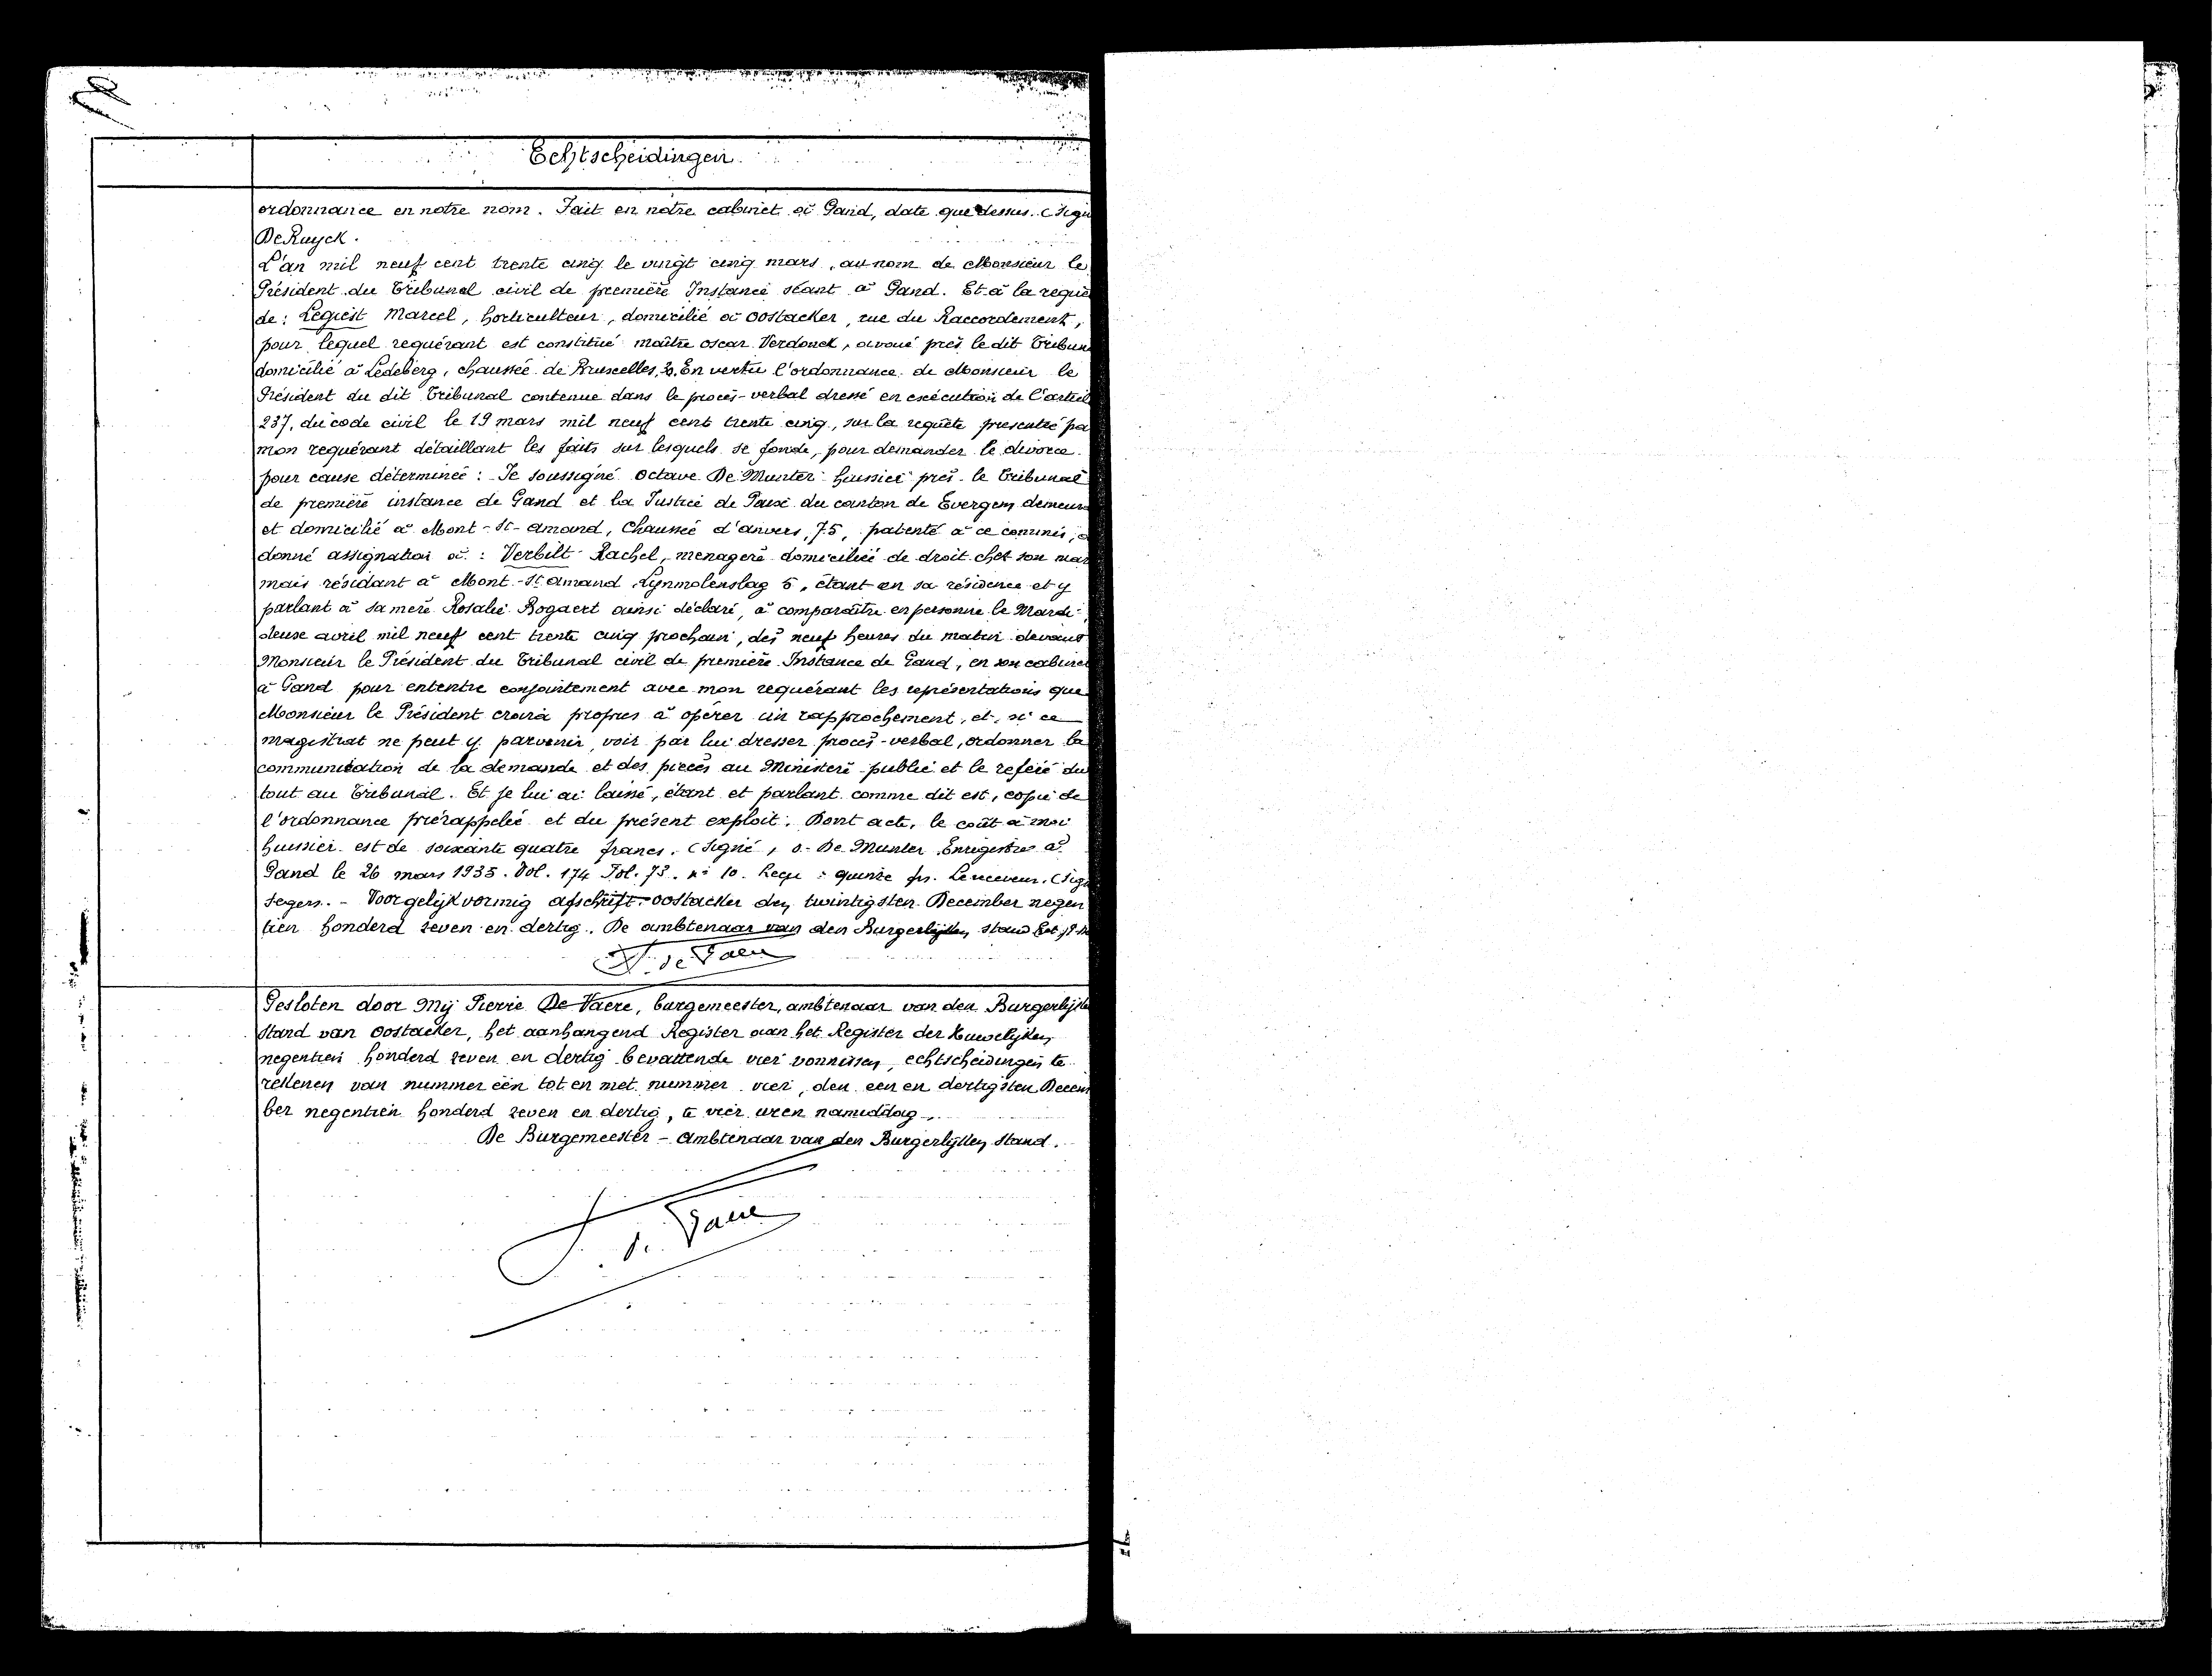 Echtscheidingen
ordonnance en notre nom. Fait en notre cabinet à Gand, date que dessus. (Sign
De Ruyck.
L'an mil neuf cent trente cinq le vingt cinq mars, au nom de Monsieur le
Président du Tribunal civil de première Instance séant à Gand. Et à la requê
de: Legiest Marcel, horticulteur, domicilié à Oostacker, rue du Raccordement,
pour lequel requérant est constitué maître Oscar Verdonck, avoué près le dit Tribun
domicilié à Ledeberg, chaussée de Bruxelles, 2. En vertu l'ordonnance de Monsieur le
Président du dit Tribunal contenue dans le procès-verbal dressé en exécution de l'articl
237, du code civil le 19 mars mil neuf cent trente cinq, sur la requête presentée pa
mon requérant détaillant les faits sur lesquels se fonde, pour demander le divorce
pour cause déterminée: Je soussigné Octave De Munter huissier près le Tribunal
de première instance de Gand et la Justice de Paix du canton de Evergem demeur
et domicilié à Mont-St-Amand, Chaussée d'Anvers, 75, patenté à ce commis, a
donné assignation à: Verbilt Rachel, menagère domiciliée de droit chez son mar
mais résidant à Mont-St Amand Lynmolenslag 5, étant en sa résidence et y
parlant à sa mère Rosalie Bogaert ainsi déclaré, à comparaître en personne le Mardi
deuse avril mil neuf cent trente cinq prochain, dès neuf heures du matin devant
Monsieur le Président du Tribunal civil de première Instance de Gand, en son cabinet
à Gand pour ententre conjointement avec mon requérant les représentations que
Monsieur le Président croira propres à opérer un rapprochement, et, si ce
magistrat ne peut y parvenir, voir par lui dresser procès-verbal, ordonner la
communication de la demande et des pièces au Ministère public et le referé du
tout au Tribunal. Et je lui ai laissé, étant et parlant comme dit est, copie de
l'ordonnance prérappelée et du présent exploit. Dont acte, le coût à moi
huissier est de soixante quatre francs. (Signé, O. De Munter Enregistré à
Gand le 26 mars 1935. Vol. 174 Fol. 73. n° 10. Reçu: quinze frs. Le receveur. (Sign
Segers. - Voor gelijkvormig afschrift. Oostacker den twintigsten December negen
tien honderd zeven en dertig. De ambtenaar van den Burgerlijken stand
P. De Vaere
Gesloten door Mij Pierre De Vaere, burgemeester, ambtenaar van den Burgerlijke
Stand van Oostacker, het aanhangend Register aan het Register der Huwelijken
negentien honderd zeven en dertig bevattende vier vonnissen, echtscheidingen te
rekenen van nummer één tot en met nummer vier, den een en dertigsten Decem
ber negentien honderd zeven en dertig, te vier uren namiddag.
De Burgemeester - Ambtenaar van den Burgerlijken Stand.
P. De Vaere